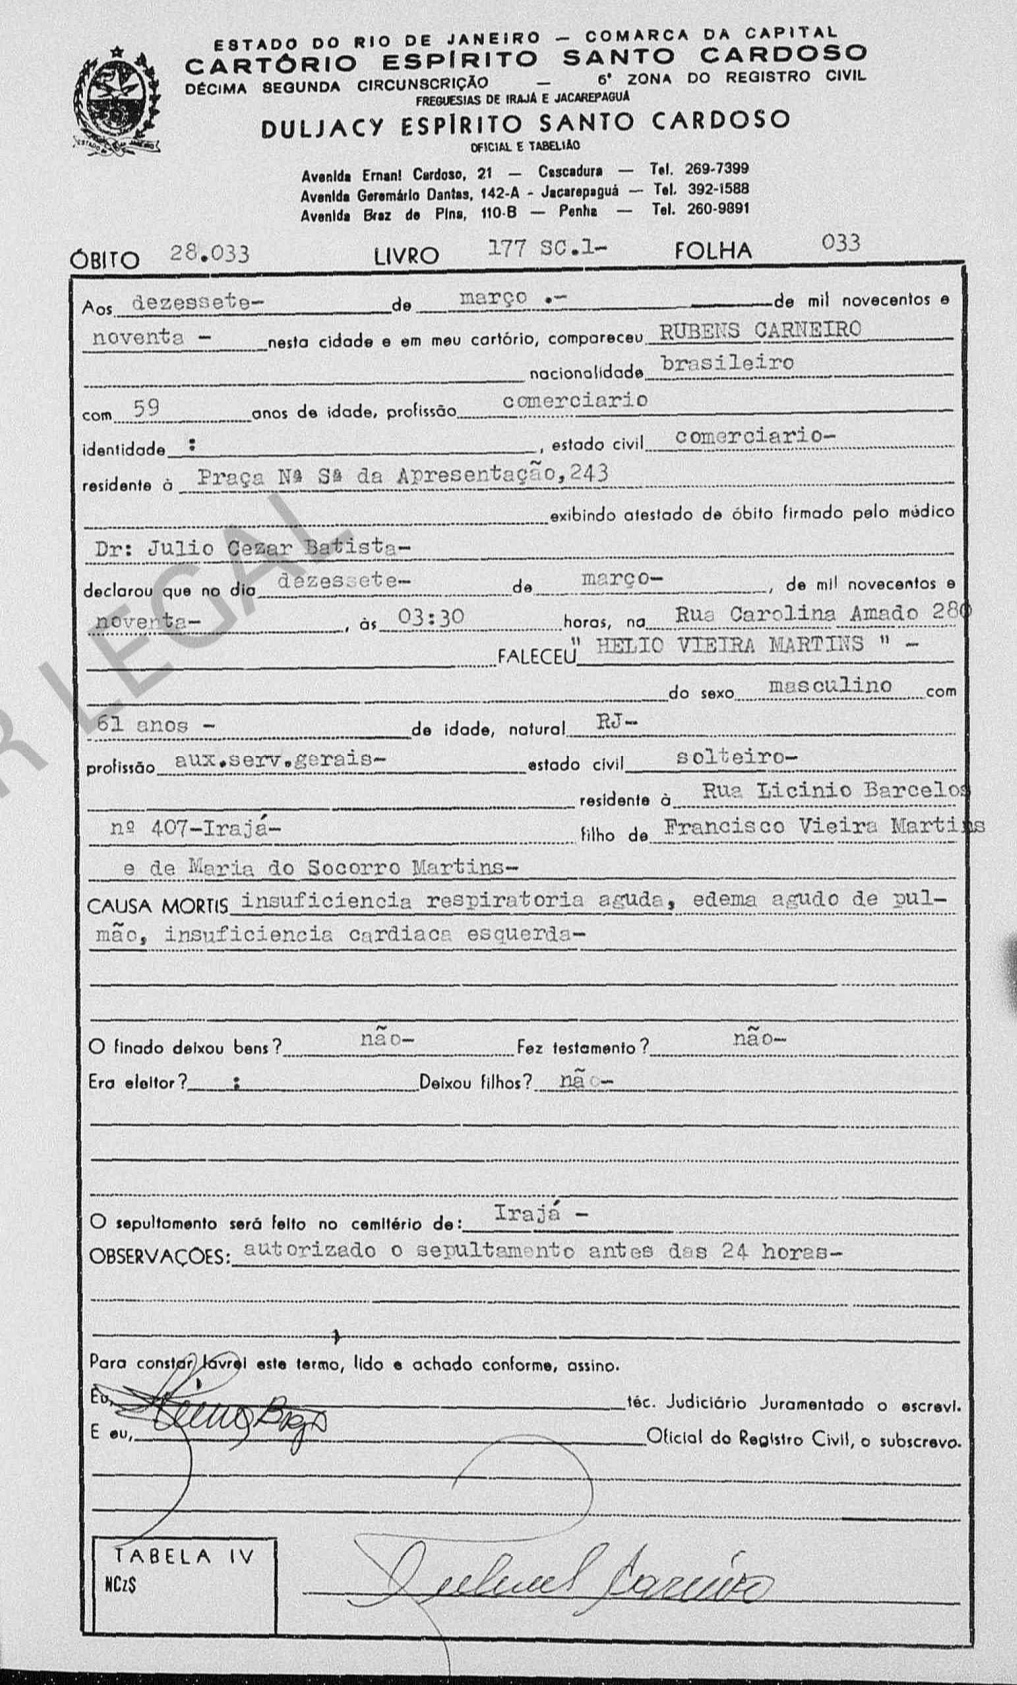 ESTADO DO RIO DE JANEIRO — COMARCA DA CAPITAL
CARTÓRIO ESPÍRITO SANTO CARDOSO
DÉCIMA SEGUNDA CIRCUNSCRIÇÃO — 6ª ZONA DO REGISTRO CIVIL
FREGUESIAS DE IRAJÁ E JACAREPAGUÁ
DULJACY ESPÍRITO SANTO CARDOSO
OFICIAL E TABELIÃO
Avenida Ernani Cardoso, 21 — Cascadura — Tel. 269-7399
Avenida Geremário Dantas, 142-A - Jacarepaguá — Tel. 392-1588
Avenida Braz de Pina, 110-B — Penha — Tel. 260-9891
ÓBITO 28.033 LIVRO 177 SC.1- FOLHA 033
Aos dezessete- de março .- de mil novecentos e
noventa - nesta cidade e em meu cartório, compareceu RUBENS CARNEIRO
nacionalidade brasileiro
com 59 anos de idade, profissão comerciario
identidade : , estado civil comerciario-
residente à Praça Nª Sª da Apresentação,243
exibindo atestado de óbito firmado pelo médico
Dr: Julio Cezar Batista-
declarou que no dia dezessete- de março- , de mil novecentos e
noventa- , às 03:30 horas, na Rua Carolina Amado 280
FALECEU " HELIO VIEIRA MARTINS " -
do sexo masculino com
61 anos - de idade, natural RJ-
profissão aux.serv.gerais- estado civil solteiro-
residente à Rua Licinio Barcelos
nº 407-Irajá- filho de Francisco Vieira Martins
e de Maria do Socorro Martins-
CAUSA MORTIS insuficiencia respiratoria aguda, edema agudo de pul-
mão, insuficiencia cardiaca esquerda-
O finado deixou bens? não- Fez testamento? não-
Era eleitor? : Deixou filhos? não-
O sepultamento será feito no cemitério de: Irajá -
OBSERVAÇÕES: autorizado o sepultamento antes das 24 horas-
Para constar lavrei este termo, lido e achado conforme, assino.
Eu, téc. Judiciário Juramentado o escrevi.
E eu, Oficial do Registro Civil, o subscrevo.
TABELA IV
NCz$
Rubens Carneiro
R LEGAL